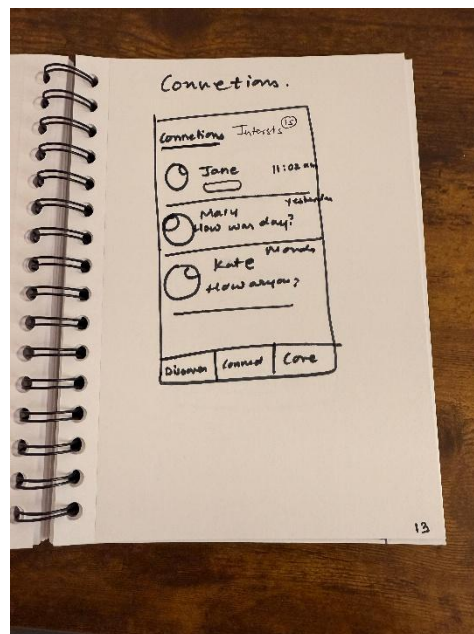 Connetions.
Connetions Intersts 15
Jane 11:02 am
Yesterday
Mary
How was day?
Monda
Kate
How are you?
Discover Connect Core
13